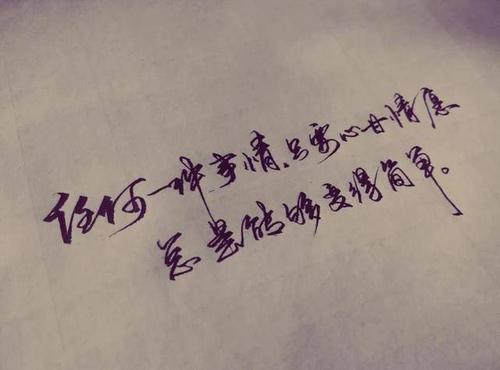 任何一种事情,只需心甘情愿
总是能够变得简单。